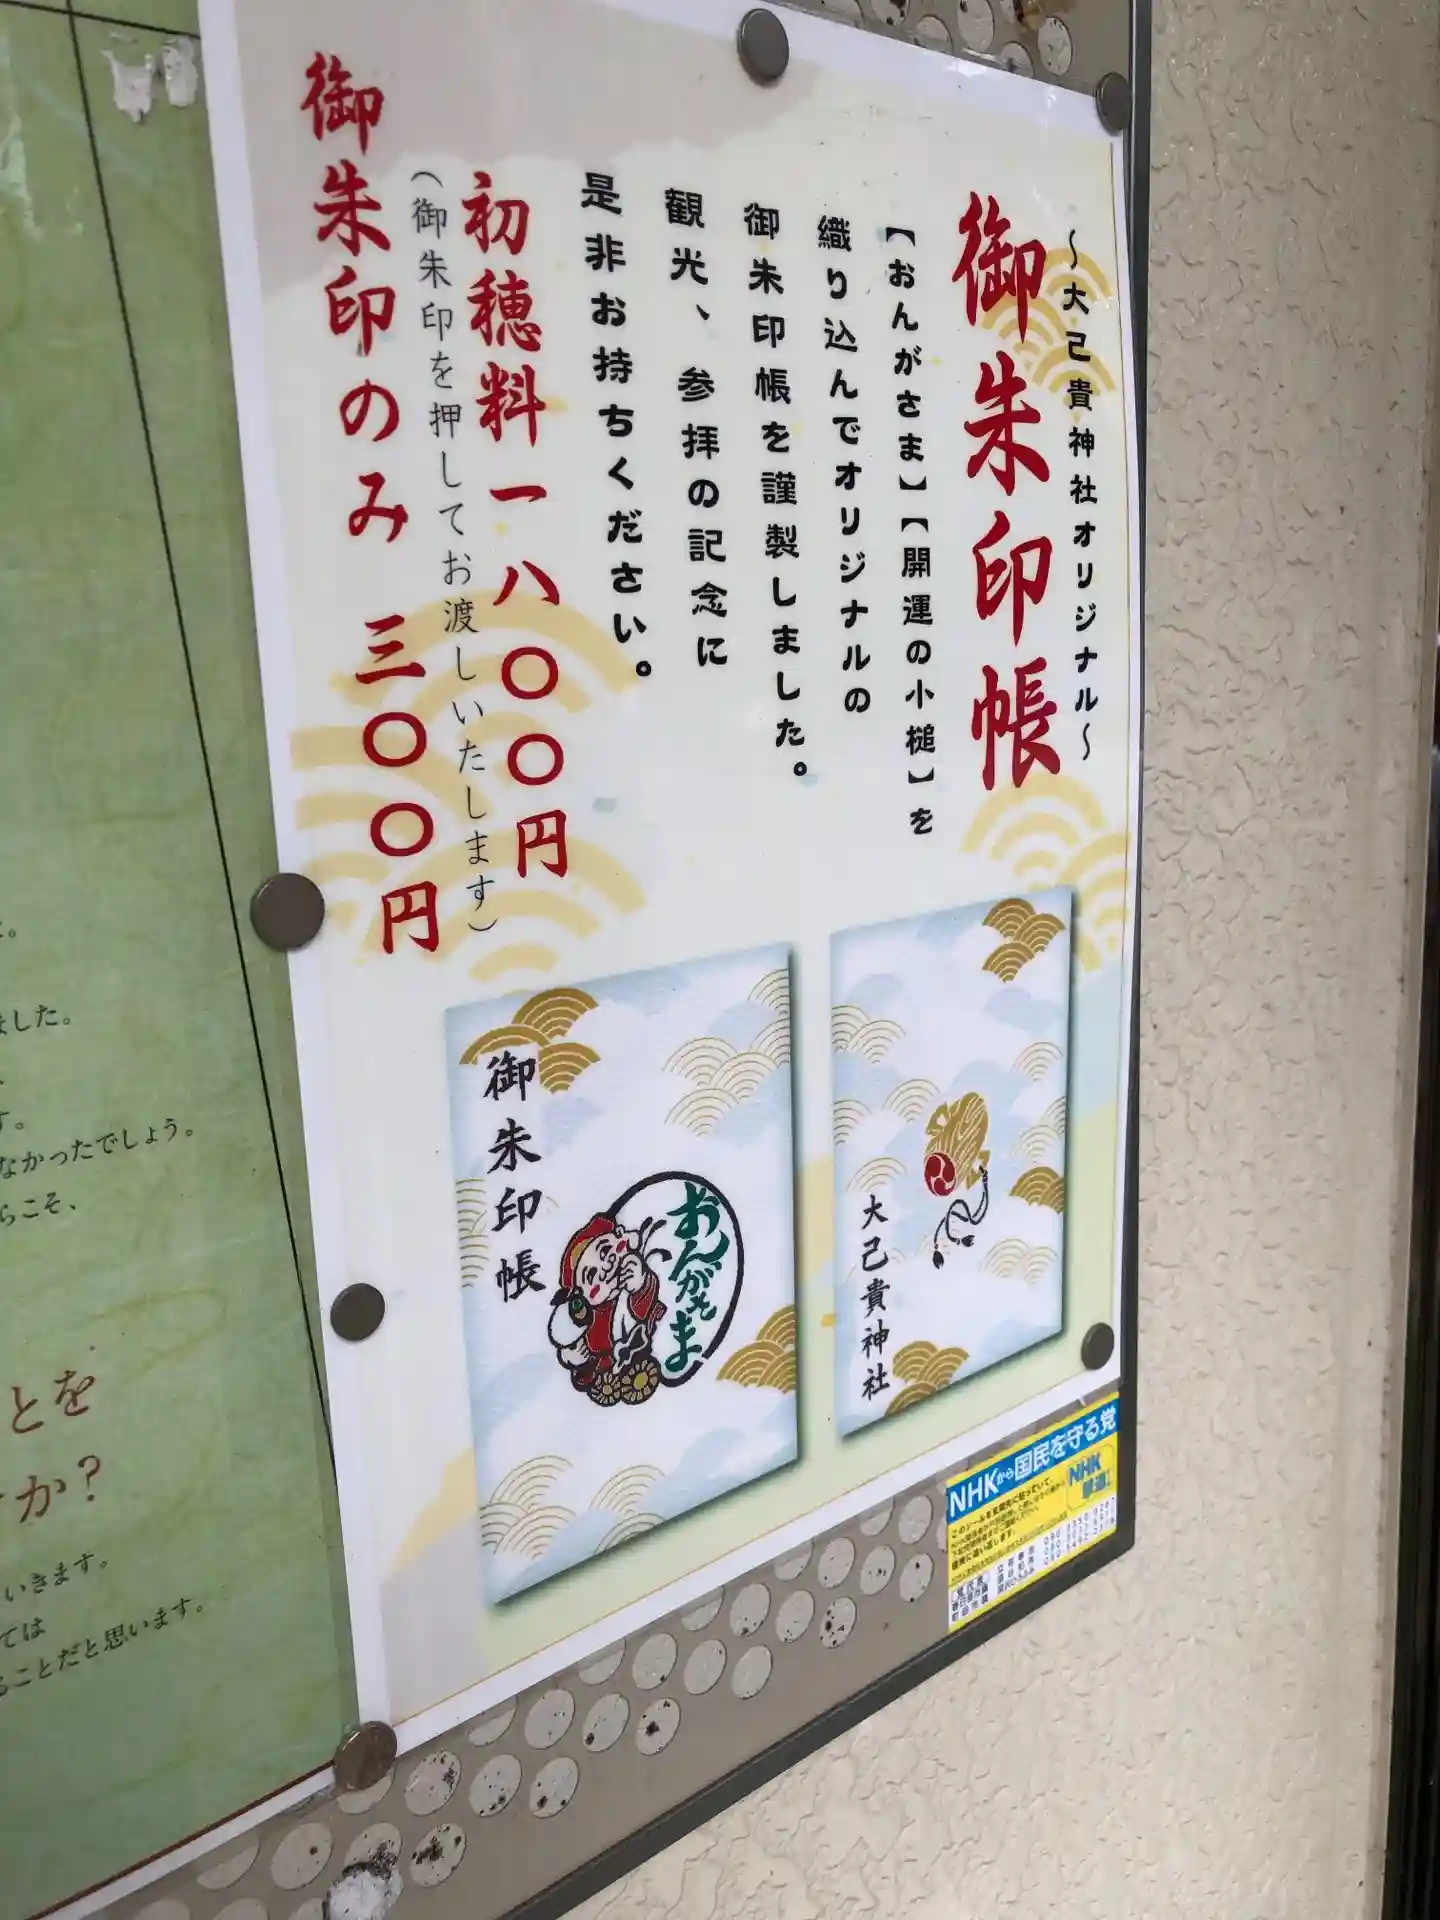 ～大己貴神社オリジナル～
御朱印帳
【おんがさま】【開運の小槌】を
織り込んでオリジナルの
御朱印帳を謹製しました。
観光、参拝の記念に
是非お持ちください。
初穂料一八〇〇円
（御朱印を押してお渡しいたします）
御朱印のみ 三〇〇円
大己貴神社
御朱印帳
おんがさま
NHKから国民を守る党
NHK
撃退!
このシールを玄関先に貼っていて、
ました。
す。
なかったでしょう。
らこそ、
とを
か？
いきます。
ては
ることだと思います。